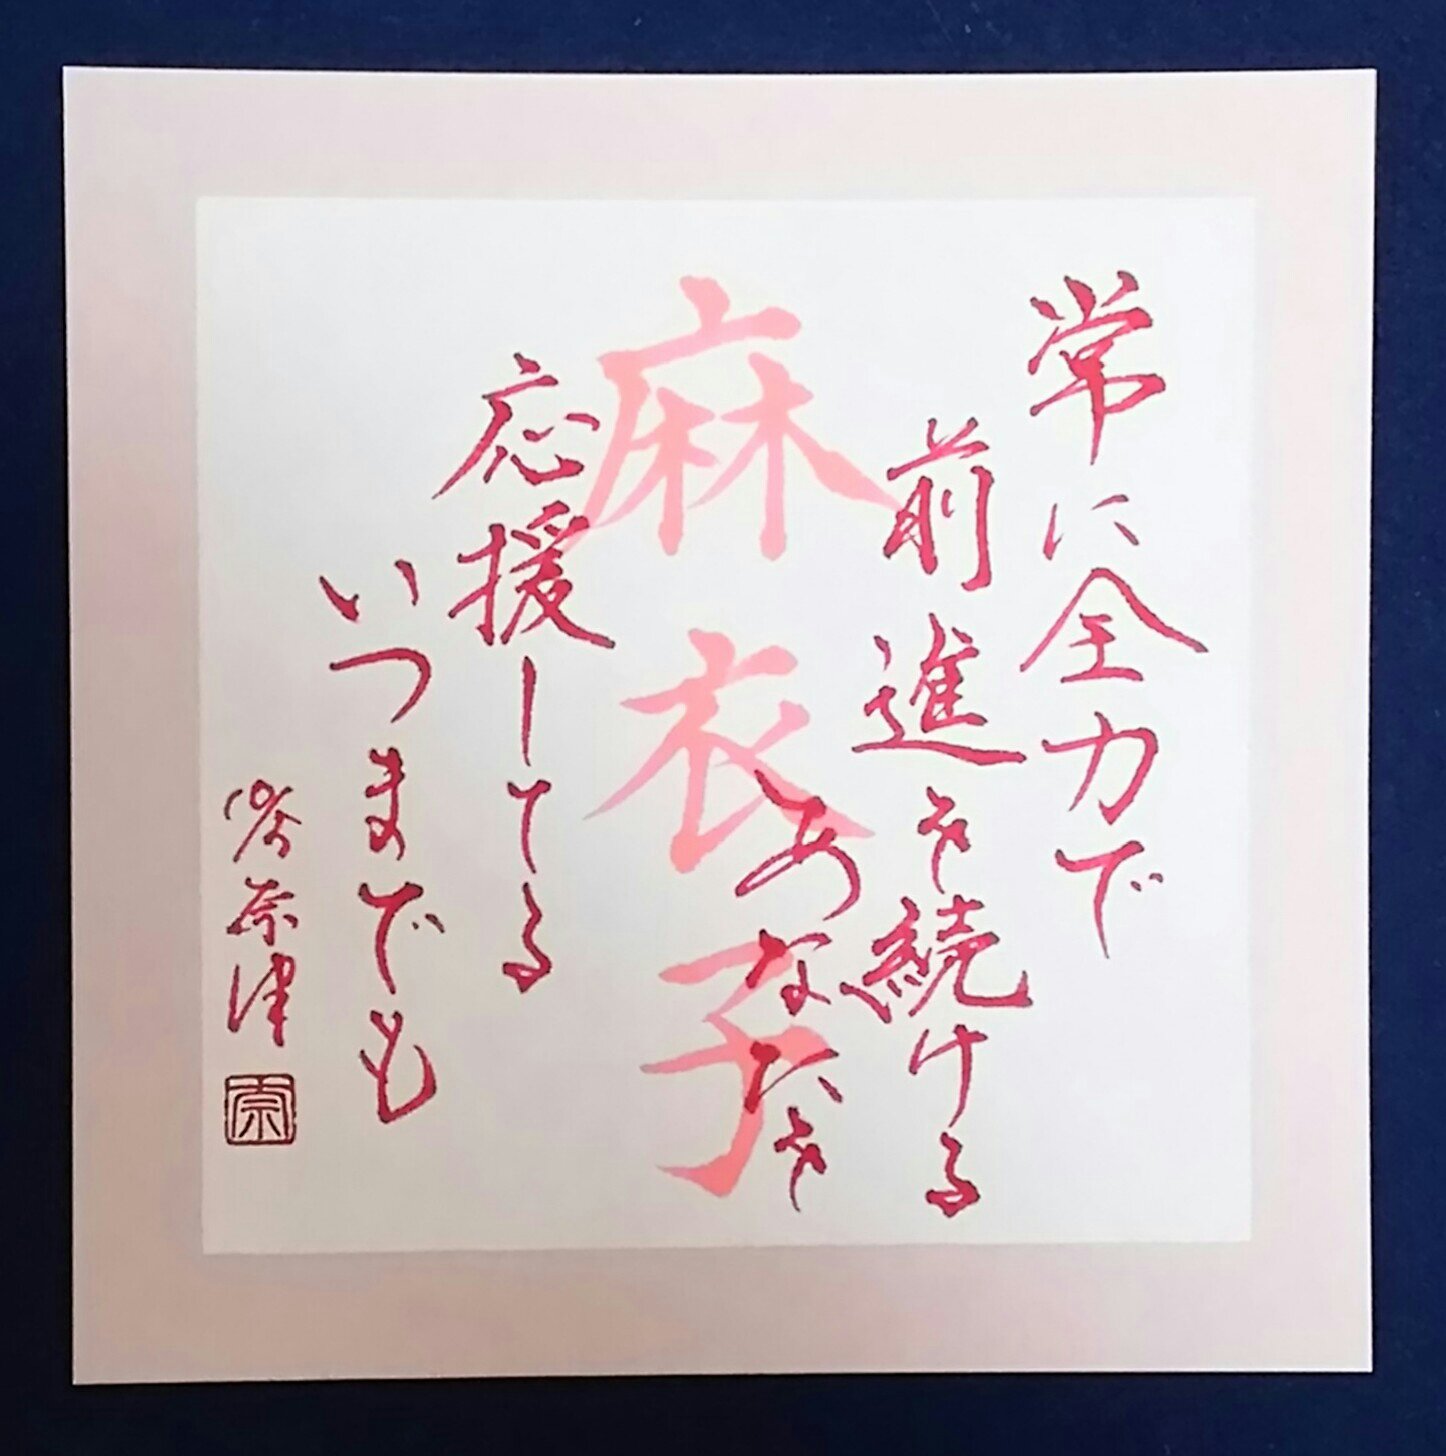 常に全力で
前進を続ける
あなたを
麻衣子
応援してる
いつまでも
奈津
奈